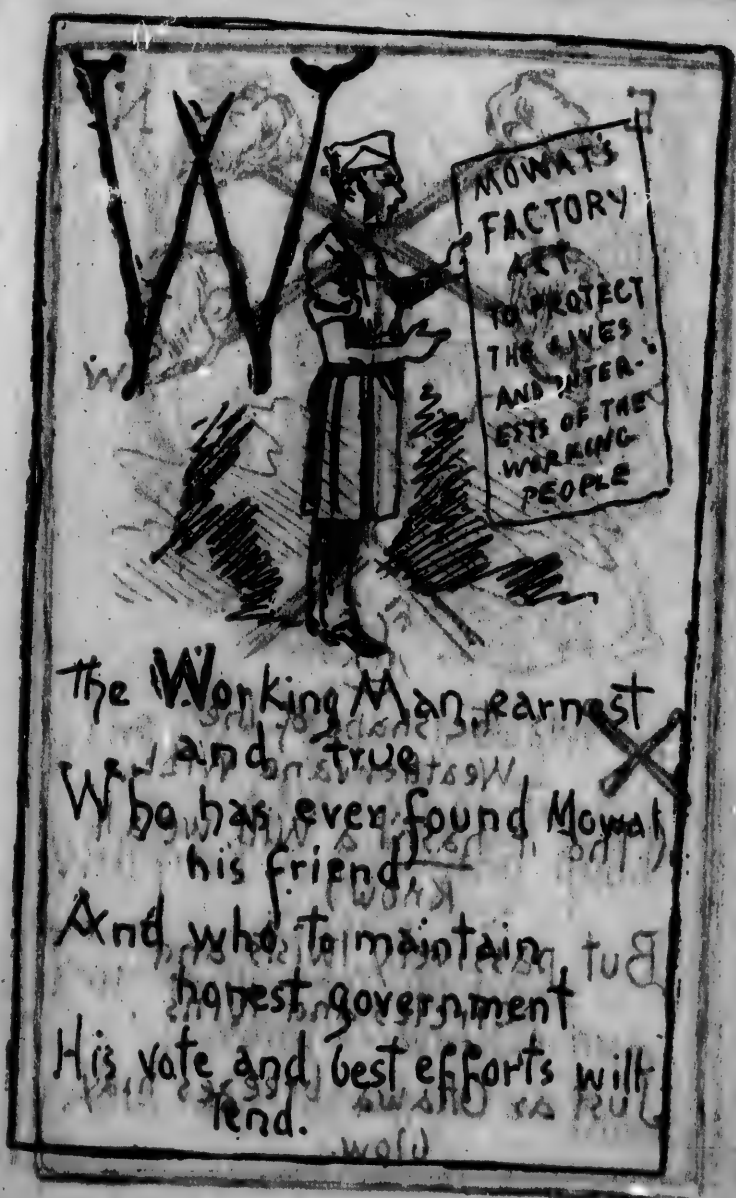 W
MOWAT'S
FACTORY
ACT
TO PROTECT
THE LIVES
AND INTER-
ESTS OF THE
WORKING
PEOPLE
The Working Man, earnest
and true
Who has ever found Mowat
his friend
And who to maintain
honest government
His vote and best efforts will
lend.